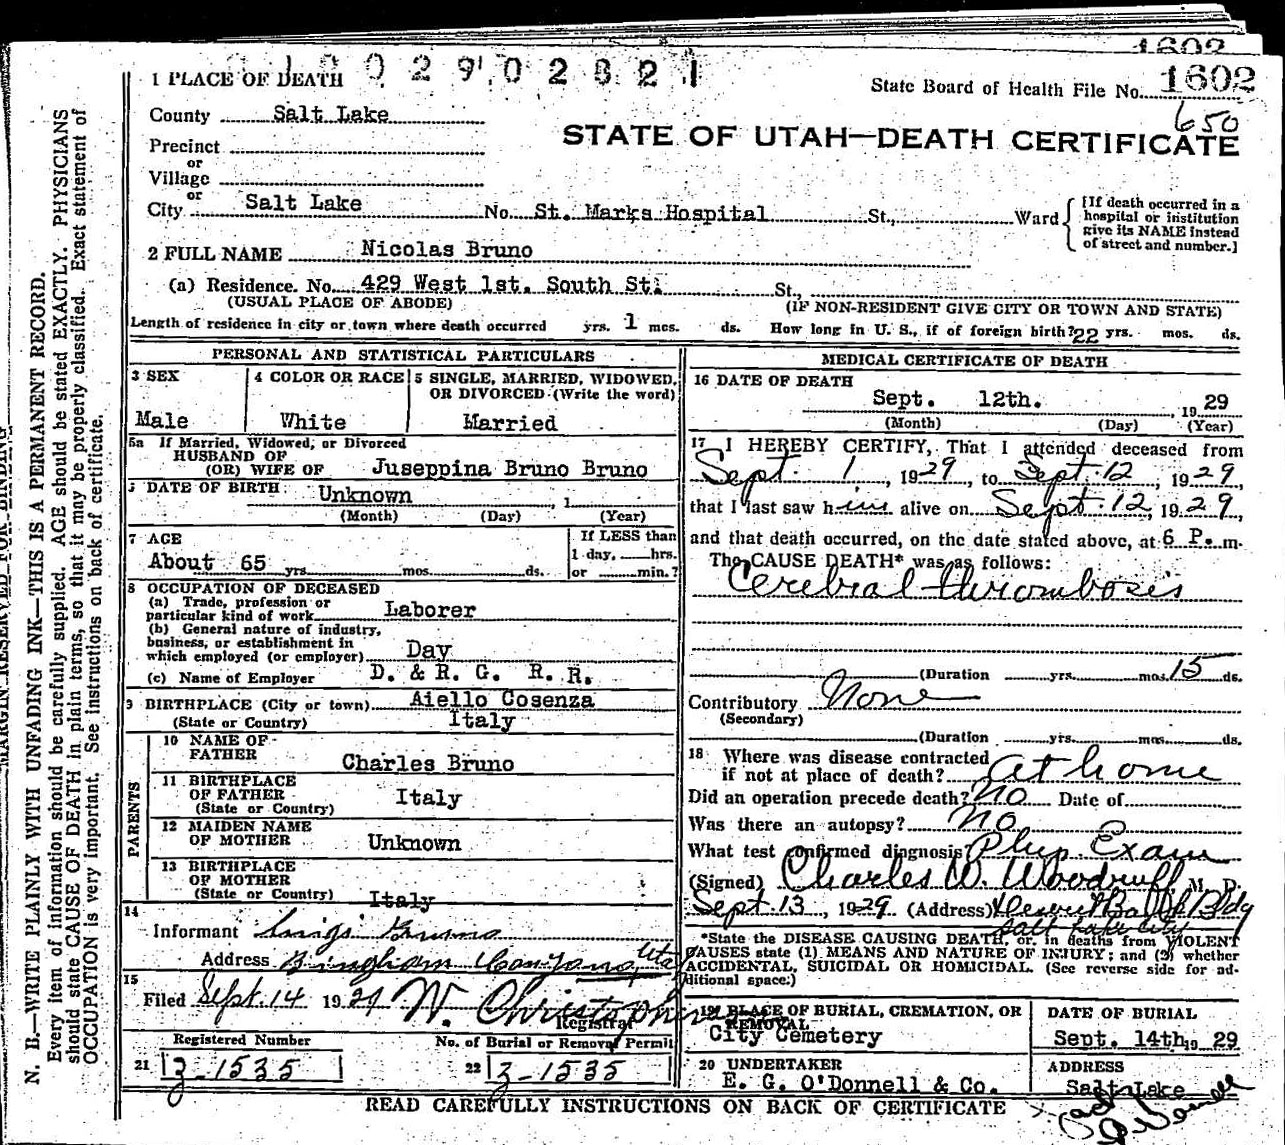 1602
1 0 0 2 9 0 2 8 2 1
1 PLACE OF DEATH
State Board of Health File No. 1602
650
County Salt Lake
STATE OF UTAH—DEATH CERTIFICATE
Precinct
or
Village
or
City Salt Lake No. St. Marks Hospital St., Ward
[If death occurred in a hospital or institution give its NAME instead of street and number.]
2 FULL NAME Nicolas Bruno
(a) Residence. No. 429 West 1st. South St. St.,
(USUAL PLACE OF ABODE) (IF NON-RESIDENT GIVE CITY OR TOWN AND STATE)
Length of residence in city or town where death occurred yrs. 1 mos. ds. How long in U. S., if of foreign birth? 22 yrs. mos. ds.
PERSONAL AND STATISTICAL PARTICULARS
3 SEX
Male
4 COLOR OR RACE
White
5 SINGLE, MARRIED, WIDOWED, OR DIVORCED (Write the word)
Married
5a If Married, Widowed, or Divorced
HUSBAND OF
(OR) WIFE OF Juseppina Bruno Bruno
DATE OF BIRTH Unknown , 1
(Month) (Day) (Year)
7 AGE
About 65 yrs. mos. ds.
If LESS than
1 day, hrs.
or min.?
8 OCCUPATION OF DECEASED
(a) Trade, profession or
particular kind of work Laborer
(b) General nature of industry,
business, or establishment in
which employed (or employer) Day
(c) Name of Employer D. & R. G. R. R.
9 BIRTHPLACE (City or town) Aiello Cosenza
(State or Country) Italy
PARENTS
10 NAME OF
FATHER Charles Bruno
11 BIRTHPLACE
OF FATHER
(State or Country) Italy
12 MAIDEN NAME
OF MOTHER Unknown
13 BIRTHPLACE
OF MOTHER
(State or Country) Italy
14
Informant Luigi Bruno
Address Bingham Canyon, Utah
15
Filed Sept. 14 1929
Registrar
Registered Number
No. of Burial or Removal Permit
21 Z-1535
22 Z-1535
MEDICAL CERTIFICATE OF DEATH
16 DATE OF DEATH
Sept. 12th. , 19 29
(Month) (Day) (Year)
17 I HEREBY CERTIFY, That I attended deceased from
Sept. 1, 1929, to Sept. 12, 1929,
that I last saw him alive on Sept. 12, 1929,
and that death occurred, on the date stated above, at 6 P. m.
The CAUSE DEATH* was as follows:
Cerebral thrombosis
(Duration yrs. mos. 15 ds.
Contributory None
(Secondary)
(Duration yrs. mos. ds.
18 Where was disease contracted
if not at place of death? at home
Did an operation precede death? No Date of
Was there an autopsy? No
What test confirmed diagnosis? Phys Exam
(Signed) Charles W. Woodruff, M. D.
Sept 13, 1929 (Address)
Salt Lake City
*State the DISEASE CAUSING DEATH, or, in deaths from VIOLENT
CAUSES state (1) MEANS AND NATURE OF INJURY; and (2) whether
ACCIDENTAL, SUICIDAL OR HOMICIDAL. (See reverse side for ad-
ditional space.)
19 PLACE OF BURIAL, CREMATION, OR
REMOVAL
City Cemetery
DATE OF BURIAL
Sept. 14th 19 29
20 UNDERTAKER
E. G. O'Donnell & Co.
ADDRESS
Salt Lake
READ CAREFULLY INSTRUCTIONS ON BACK OF CERTIFICATE
MARGIN RESERVED FOR BINDING
N. B.—WRITE PLAINLY WITH UNFADING INK—THIS IS A PERMANENT RECORD.
Every item of information should be carefully supplied. AGE should be stated EXACTLY. PHYSICIANS
should state CAUSE OF DEATH in plain terms, so that it may be properly classified. Exact statement of
OCCUPATION is very important. See instructions on back of certificate.